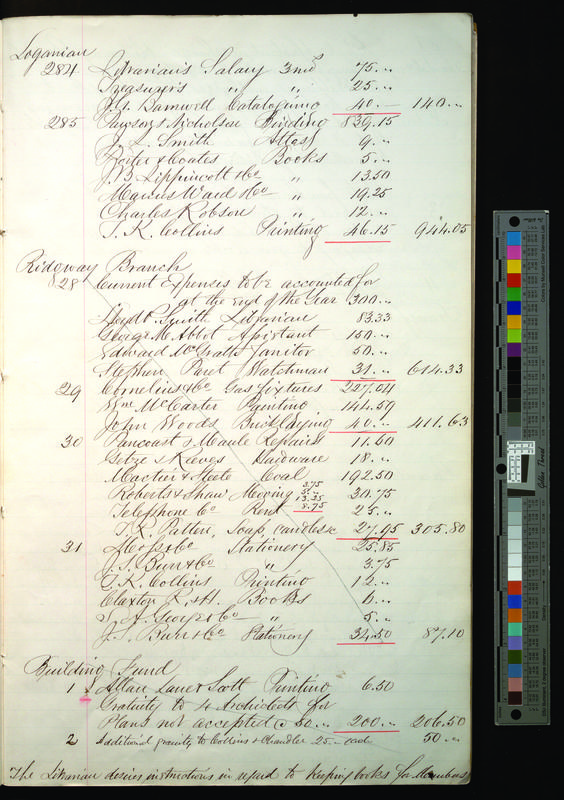 Loganian
284 Librarian's Salary 3 mos 75..
Treasurer's " " 25..
J.G. Barnwell Cataloguing 40.— 140..
285 Pawson & Nicholson Binding 839.15
J. L. Smith Atlas 9..
Porter & Coates Books 5..
J.B. Lippincott & Co " 13.50
Marcus Ward & Co " 19.25
Charles Robson " 12..
T. K. Collins Printing 46.15 944.05
Ridgway Branch
28 Current Expenses to be accounted for
at the End of the Year 300..
Lloyd P. Smith Librarian 83.33
George M. Abbot Assistant 150..
Edward McGrath Janitor 50..
Stephen Paret Watchman 31.. 614.33
29 Cornelius & Co Gas fixtures 227.04
Wm McCarter Painting 144.59
John Woods Bricklaying 40.. 411.63
30 Pancoast & Maule Repairs 11.60
Getze & Reeves Hardware 18..
Coal 192.50
Roberts & Shaw Moving 30.75
3.75
5..
13.25
8.75
Telephone Co Rent 25..
T. R. Patton, Soap, candles &c 27.95 305.80
31 & Co Stationery 25.85
J. S. Burr & Co " 3.75
T. K. Collins Printing 12..
Claxton R. & H. Books 6..
& Co " 5..
J. S. Burr & Co Stationery 34.50 87.10
Building Fund
1 Allan Lane & Scott Printing 6.50
Gratuity to 4 Architects for
Plans not accepted @ 50.. 200.. 206.50
2 Additional gratuity to Collins & Chandler 25— each 50..
The Librarian desires instructions in regard to keeping books for Members